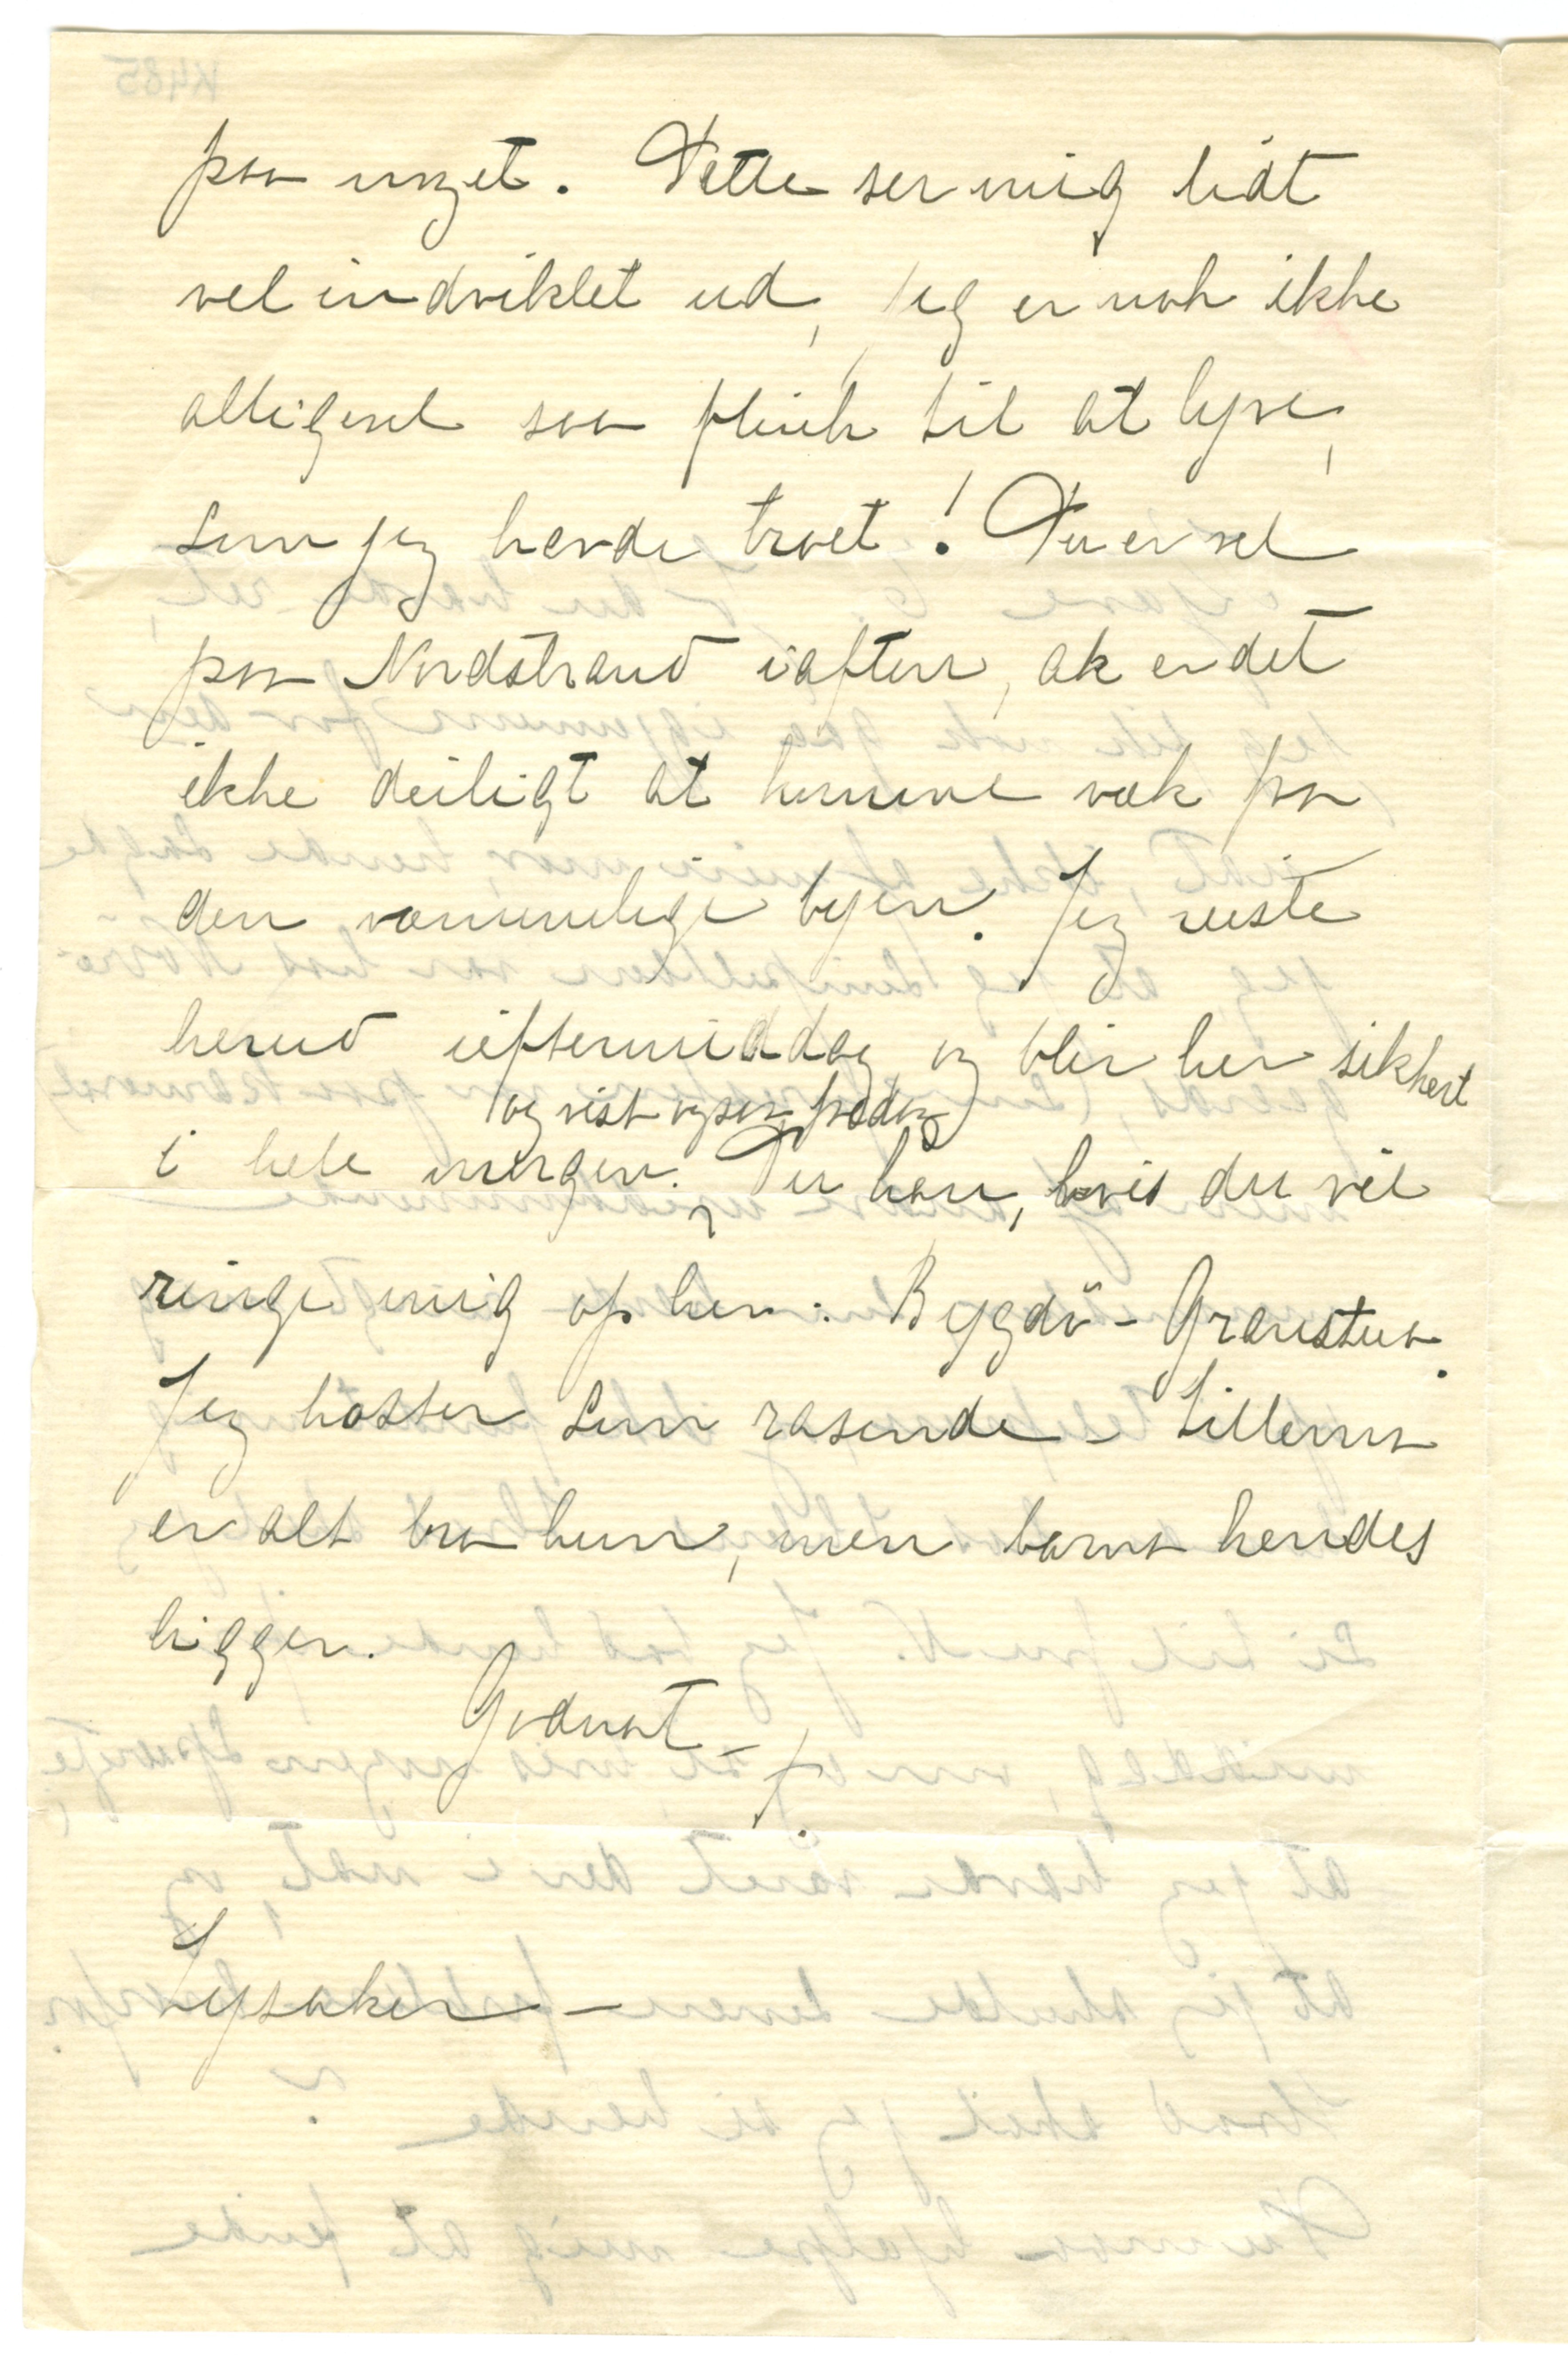 paa noget. Dette ser mig lidt
vel indviklet ud, jeg er nok ikke
alligevel saa flink til at lyve,
som jeg havde troet! Du er vel
paa Nordstrand iaften, ak er det
ikke deiligt at komme væk fra
den væmmelige byen. Jeg reiste
herud ieftermiddag og blir her sikkert
og vist ogsaa fredag
i hele morgen. Du kan, hvis du vil
ringe mig op her: Bygdö - Granstua.
Jeg hoster som rasende - Lillema
er alt bra hun, men barna hendes
ligger.
Godnat -
J.
Lysaker -